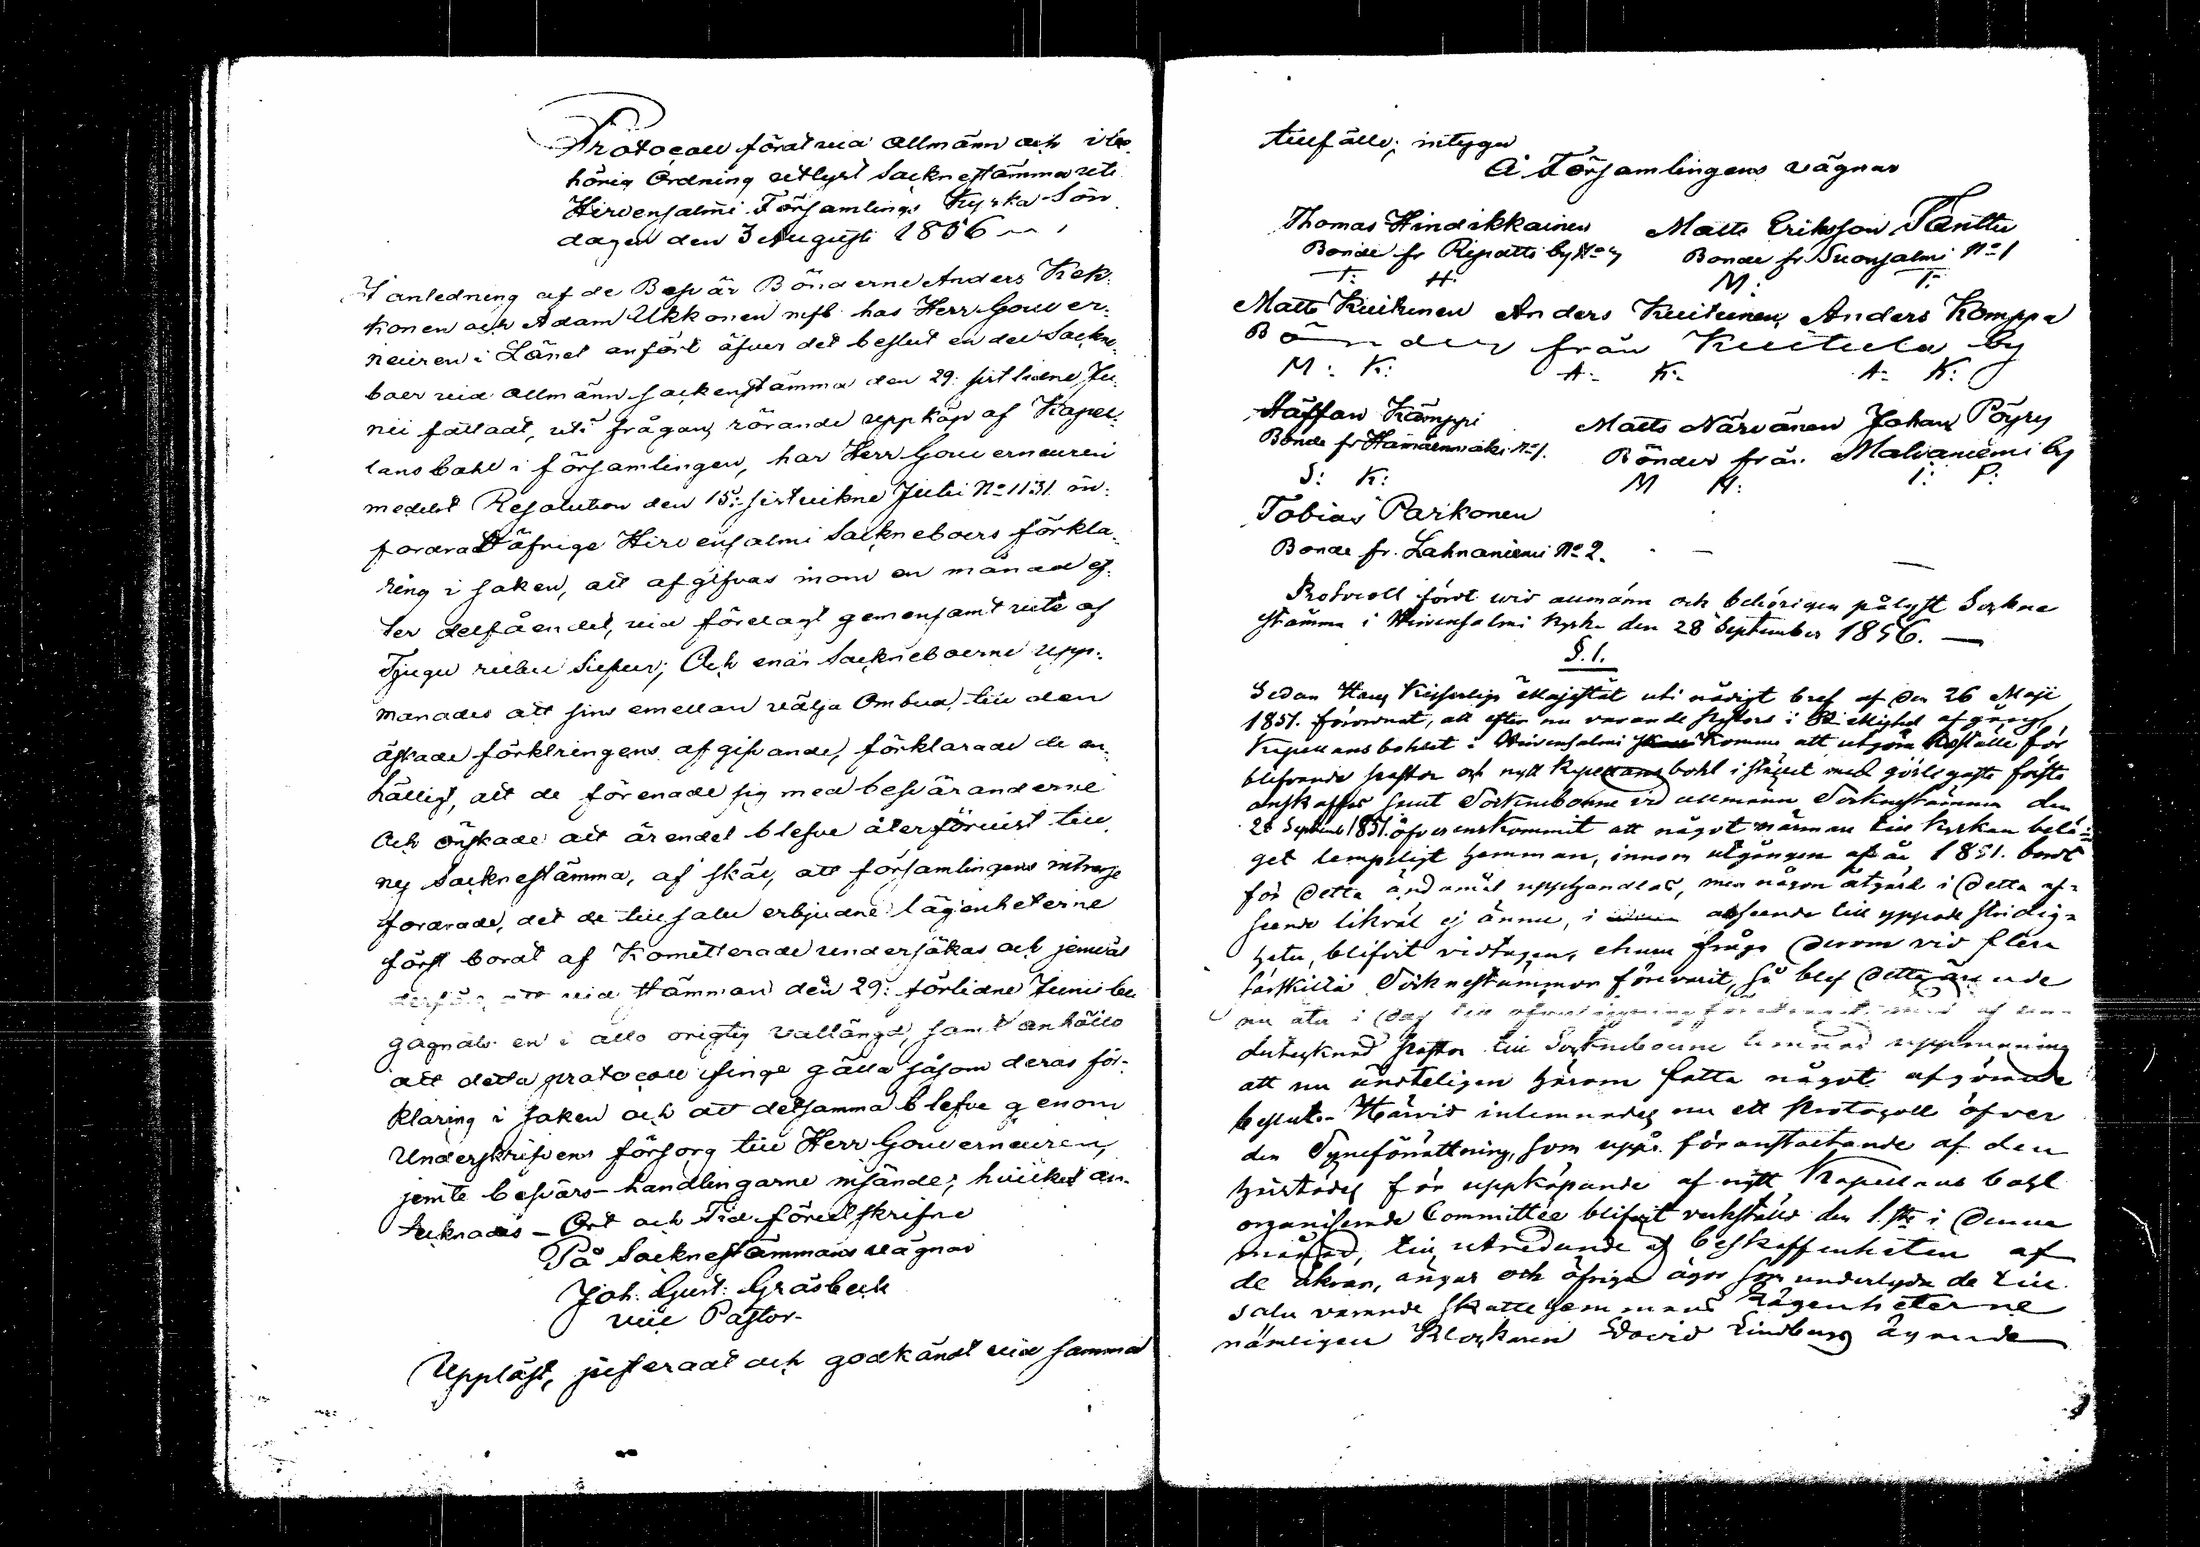 Protocoll fördt wid allmänn och i be-
hörig Ordning utlyst Socknestämma uti
Hirvensalmi Församlings Kyrka Sön-
dagen den 3 Augusti 1856
I anledning af de Besvär Bönderne Anders Kek-
konen och Adam Ukkonen m fl. hos Herr Gouver-
neuren i Länet anfört öfver det beslut en del Sockne-
boer wid allmänn sockenstämma den 29: sistledne Ju-
nii fattadt, uti frågan rörande uppköp af Kapel-
lans bohl i församlingen, har Herr Gouverneuren
medelst Resolution den 15: sistvikne Julii No 1131. in-
fordrat öfrige Hirvensalmi Sockneboers förkla-
ring i saken, att afgifvas inom en månad ef-
ter delfåendet, wid förelagt gemensamt wite af
Tjugu rubel Silfver; Och enär Sockneboerne upp-
manades att sins emellan välja Ombud, till den
äskade förklringens afgifvande, förklarade de en-
hälligt, att de förenade sig med besväranderne
Och önskade att ärendet blefve återförvist till
ny Socknestämma, af skäl, att församlingens intresse
fordrade, det de till salu erbjudne lägenheterne
först bordt af Komitterade undersökas och jemväl
wid stämman den 29: förlidne Junii be-
gagnats en i allo origtig vallängd, samt anhöllo
att detta protocoll finge gälla såsom deras för-
klaring i saken och att detsamma blefve genom
Underskrifvens försorg till Herr Gouverneuren,
jemte besvärs-handlingarne insände; hvilket an-
tecknades – Ort och Tid förutskrifne
På Socknestämmans vägnar
Joh. Gust: Gråsbeck
vice Pastor.
Uppläst, justeradt och godkändt wid samma
tillfälle; intyga
Å Församlingens vägnar
Thomas Hindikkainen Matts Eriksson Tanttu
Bonde fr Ripatti by No Bonde fr. Suonsalmi No 1
T: H: M: T:
Matts Kuitunen Anders Kuitunen, Anders Komppa
Bönder från Kuitula by
M: K: A: K: A: K:
Staffan Kämppi Matts Närvänen Johan Pöyry
Bonde fr Hämeenmäki No 1. Bönder från Malvaniemi by
S: K: M N: J: P:
Tobias Parkonen
Bonde fr. Lahnaniemi No 2.
Protocoll fördt wid allmänn och behörigen pålyst Sockne
stämma i Hirvensalmi Kyrka den 28 September 1856.
§. 1.
Sedan Hans Kejserliga Majestät uti nådigt bref af den 26 Maji
1851. förordnat, att efter nu varande Pastors i afgång
Kapellansbohlet i Hirvensalmi komme att utgöra Boställe för
blifvande Pastor och nytt Kapellansbohl i stället med görligaste första
anskaffas samt Sockneboerne vid allmänn Socknestämma den
28 September 1851. öfverenskommit att något närmare till Kyrkan belä-
get lempeligt hemman, innom utgången af år 1851. bordt
för detta ändamål upphandlas, men någon åtgärd i detta af-
seende likväl ej ännu, i afseende till yppade stridig-
heter, blifvit vidtagen, ehuru fråga derom vid flera
särskilda Socknestämmor förevarit, så blef detta ärende
nu åter i dag till
dertecknad Pastor till Sockneboerne lemnad uppmaning
att nu ändteligen härom fatta något afgörande
beslut. Härvid inlemnades nu ett Protocoll öfver
den Syneförrättning, som uppå föranstaltande af den
härstädes för uppköpande af nytt Kapellans bohl
organiserade Committée blifvit verkställd den 1.sta i denna
månad, till utredande af beskaffenheten af
de åkrar, ängar och öfriga ägor som underlyda de till
salu varande skattehemmans Lägenheterne
nämligen Klockaren David Lindberg ägande